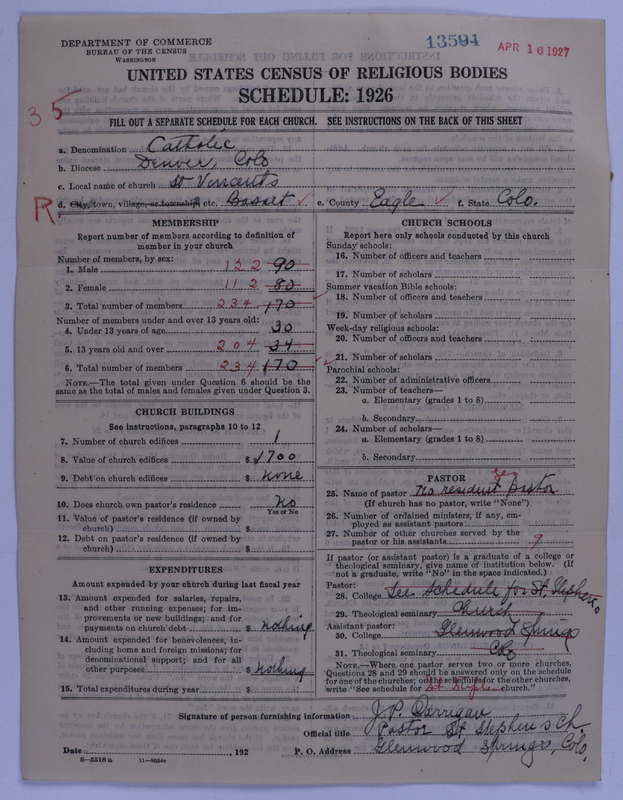 DEPARTMENT OF COMMERCE
BUREAU OF THE CENSUS
WASHINGTON
13504
APR 16 1927
UNITED STATES CENSUS OF RELIGIOUS BODIES
SCHEDULE: 1926
35
FILL OUT A SEPARATE SCHEDULE FOR EACH CHURCH. SEE INSTRUCTIONS ON THE BACK OF THIS SHEET
a. Denomination Catholic
b. Diocese Denver, Colo
c. Local name of church St Vincents
R
d. City, town, village, or township, etc. Basalt e. County Eagle f. State Colo.
MEMBERSHIP
Report number of members according to definition of
member in your church
Number of members, by sex:
1. Male 122 90
2. Female 112 80
3. Total number of members 234 170
Number of members under and over 13 years old:
4. Under 13 years of age 30
5. 13 years old and over 204 34
6. Total number of members 234 170
NOTE.—The total given under Question 6 should be the
same as the total of males and females given under Question 3.
CHURCH BUILDINGS
See instructions, paragraphs 10 to 12
7. Number of church edifices 1
8. Value of church edifices $1700
9. Debt on church edifices $ none
10. Does church own pastor's residence no
Yes or No
11. Value of pastor's residence (if owned by
church) $
12. Debt on pastor's residence (if owned by
church) $
EXPENDITURES
Amount expended by your church during last fiscal year
13. Amount expended for salaries, repairs,
and other running expenses; for im-
provements or new buildings; and for
payments on church debt $ nothing
14. Amount expended for benevolences, in-
cluding home and foreign missions; for
denominational support; and for all
other purposes $ nothing
15. Total expenditures during year $
CHURCH SCHOOLS
Report here only schools conducted by this church
Sunday schools:
16. Number of officers and teachers
17. Number of scholars
Summer vacation Bible schools:
18. Number of officers and teachers
19. Number of scholars
Week-day religious schools:
20. Number of officers and teachers
21. Number of scholars
Parochial schools:
22. Number of administrative officers
23. Number of teachers—
a. Elementary (grades 1 to 8)
b. Secondary
24. Number of scholars—
a. Elementary (grades 1 to 8)
b. Secondary
PASTOR
25. Name of pastor No resident pastor
(If church has no pastor, write "None")
26. Number of ordained ministers, if any, em-
ployed as assistant pastors
27. Number of other churches served by the
pastor or his assistants 9
If pastor (or assistant pastor) is a graduate of a college or
theological seminary, give name of institution below. (If
not a graduate, write "No" in the space indicated.)
Pastor:
28. College See Schedule for St. Stephens
29. Theological seminary Church
Assistant pastor:
30. College Glenwood Springs
31. Theological seminary Colo
NOTE.—Where one pastor serves two or more churches,
Questions 28 and 29 should be answered only on the schedule
for one of the churches; on the schedules for the other churches,
write "See schedule for St Stephen church."
Signature of person furnishing information J.P. Carrigan
Official title Pastor St Stephen's Ch.
Date , 192 P. O. Address Glenwood Springs, Colo,
8—5318 a 11—9054a